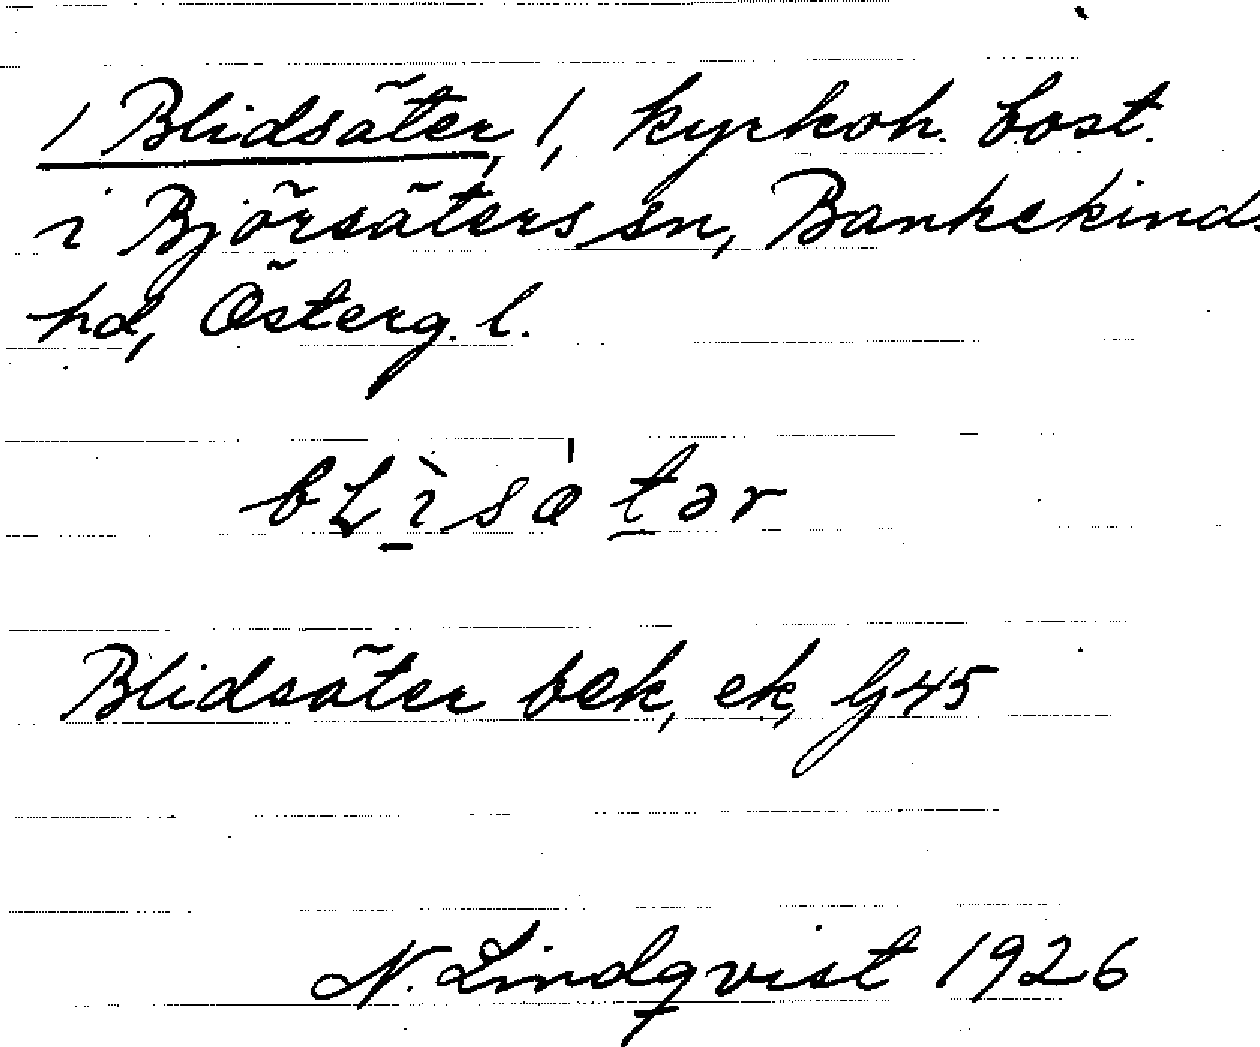 / Blidsäter, /, kyrkoh. bost.
i Björsäters sn, Bankekinds
hd, Österg. l.
bLìsa'tər
Blidsäter bek, ek, G45
N. Lindqvist 1926